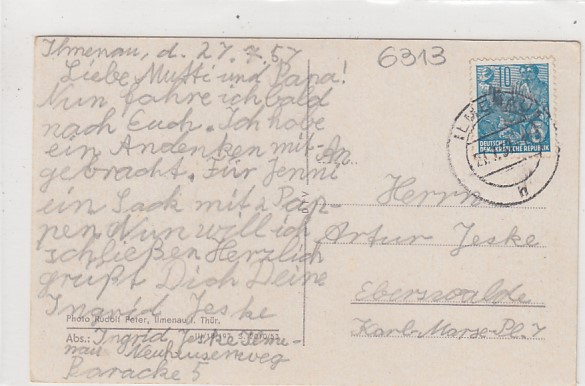 Ilmenau, d. 27.7.57
Liebe Mutti und Papa!
Nun fahre ich bald
nach Euch. Ich habe
ein Andenken mit-
gebracht. Für Jenni
ein Sack mit 2 Pap-
pen Nun will ich
schließen Herzlich
grüßt Dich Deine
Ingrid Jeske
Photo Rudolf Peter, Ilmenau i. Thür.
Abs.: Ingrid Jeske Ilme-
nau Neuhauserweg
Baracke 5
6313
10
DEUTSCHE
DEMOKRATISCHE REPUBLIK
ILMENAU
An
Herrn
Artur Jeske
Eberswalde
Karl-Marx-Pl. 7